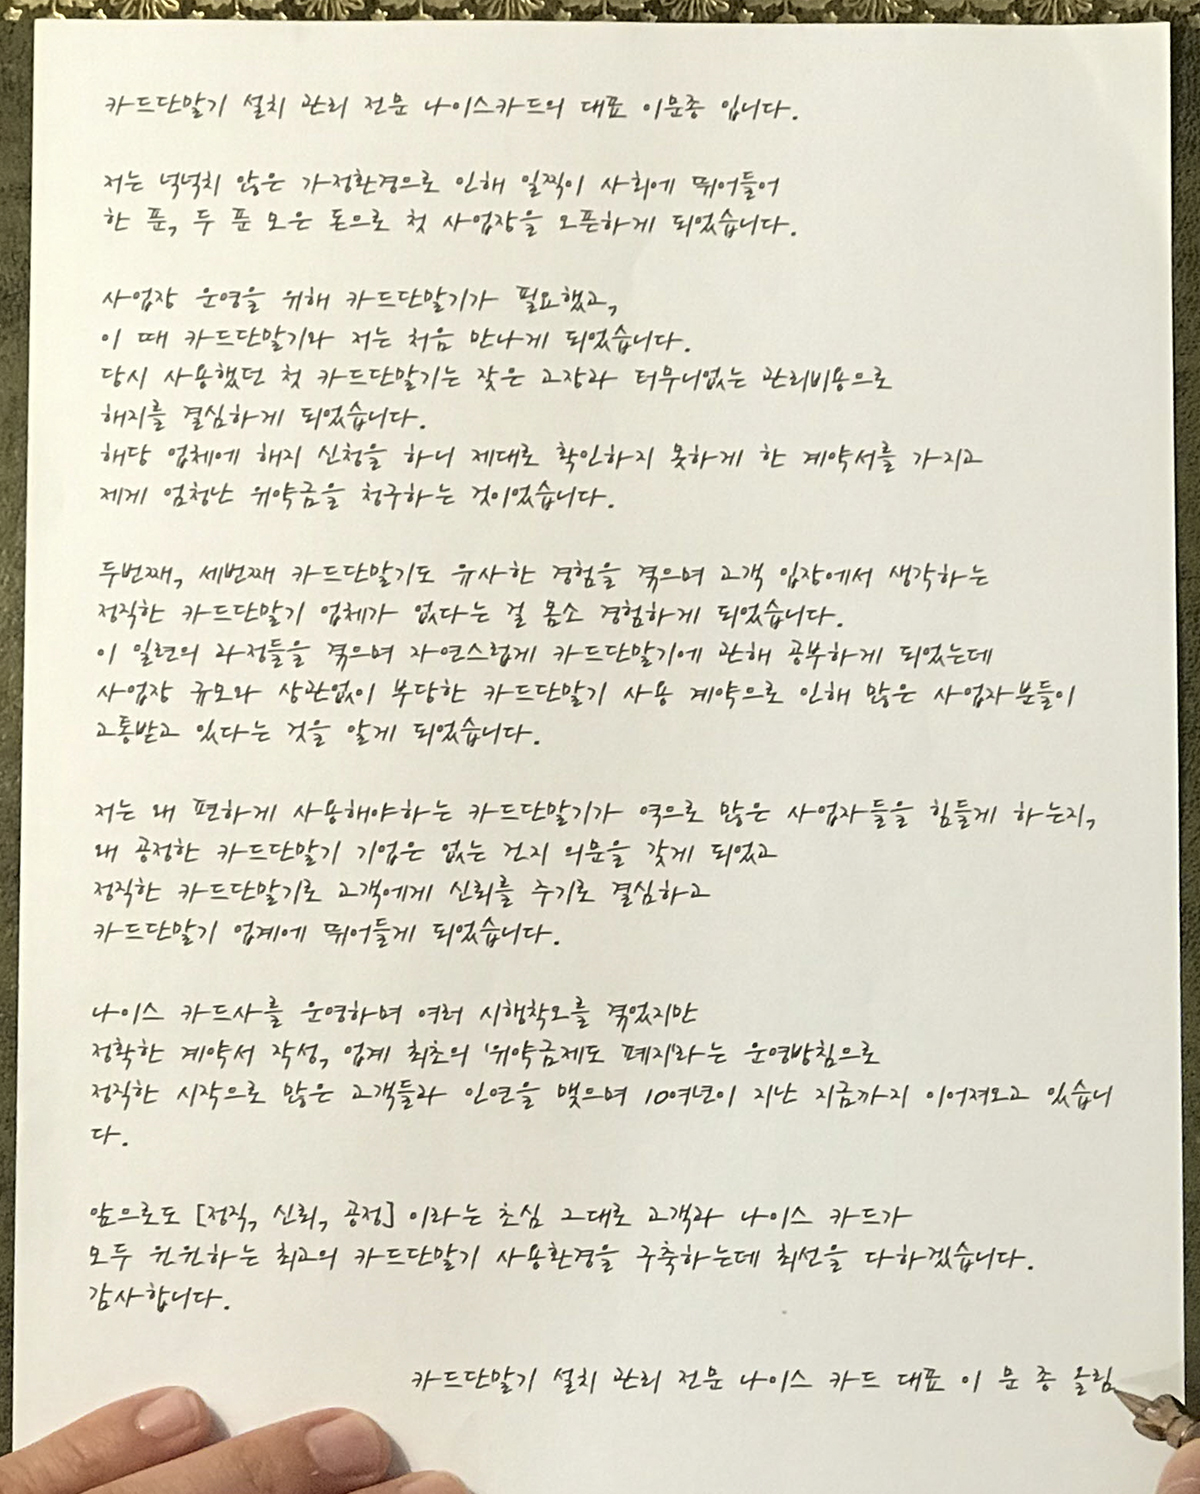 카드단말기 설치 관리 전문 나이스카드의 대표 이문종 입니다.
저는 넉넉치 않은 가정환경으로 인해 일찍이 사회에 뛰어들어
한 푼, 두 푼 모은 돈으로 첫 사업장을 오픈하게 되었습니다.
사업장 운영을 위해 카드단말기가 필요했고,
이 때 카드단말기와 저는 처음 만나게 되었습니다.
당시 사용했던 첫 카드단말기는 잦은 고장과 터무니없는 관리비용으로
해지를 결심하게 되었습니다.
해당 업체에 해지 신청을 하니 제대로 확인하지 못하게 한 계약서를 가지고
제게 엄청난 위약금을 청구하는 것이었습니다.
두번째, 세번째 카드단말기도 유사한 경험을 겪으며 고객 입장에서 생각하는
정직한 카드단말기 업체가 없다는 걸 몸소 경험하게 되었습니다.
이 일련의 과정들을 겪으며 자연스럽게 카드단말기에 관해 공부하게 되었는데
사업장 규모와 상관없이 부당한 카드단말기 사용 계약으로 인해 많은 사업자분들이
고통받고 있다는 것을 알게 되었습니다.
저는 왜 편하게 사용해야하는 카드단말기가 역으로 많은 사업자들을 힘들게 하는지,
왜 공정한 카드단말기 기업은 없는 건지 의문을 갖게 되었고
정직한 카드단말기로 고객에게 신뢰를 주기로 결심하고
카드단말기 업계에 뛰어들게 되었습니다.
나이스 카드사를 운영하며 여러 시행착오를 겪었지만
정확한 계약서 작성, 업계 최초의 '위약금제도 폐지'라는 운영방침으로
정직한 시작으로 많은 고객들과 인연을 맺으며 10여년이 지난 지금까지 이어져오고 있습니
다.
앞으로도 [정직, 신뢰, 공정] 이라는 초심 그대로 고객과 나이스 카드가
모두 윈윈하는 최고의 카드단말기 사용환경을 구축하는데 최선을 다하겠습니다.
감사합니다.
카드단말기 설치 관리 전문 나이스 카드 대표 이 문 종 올림